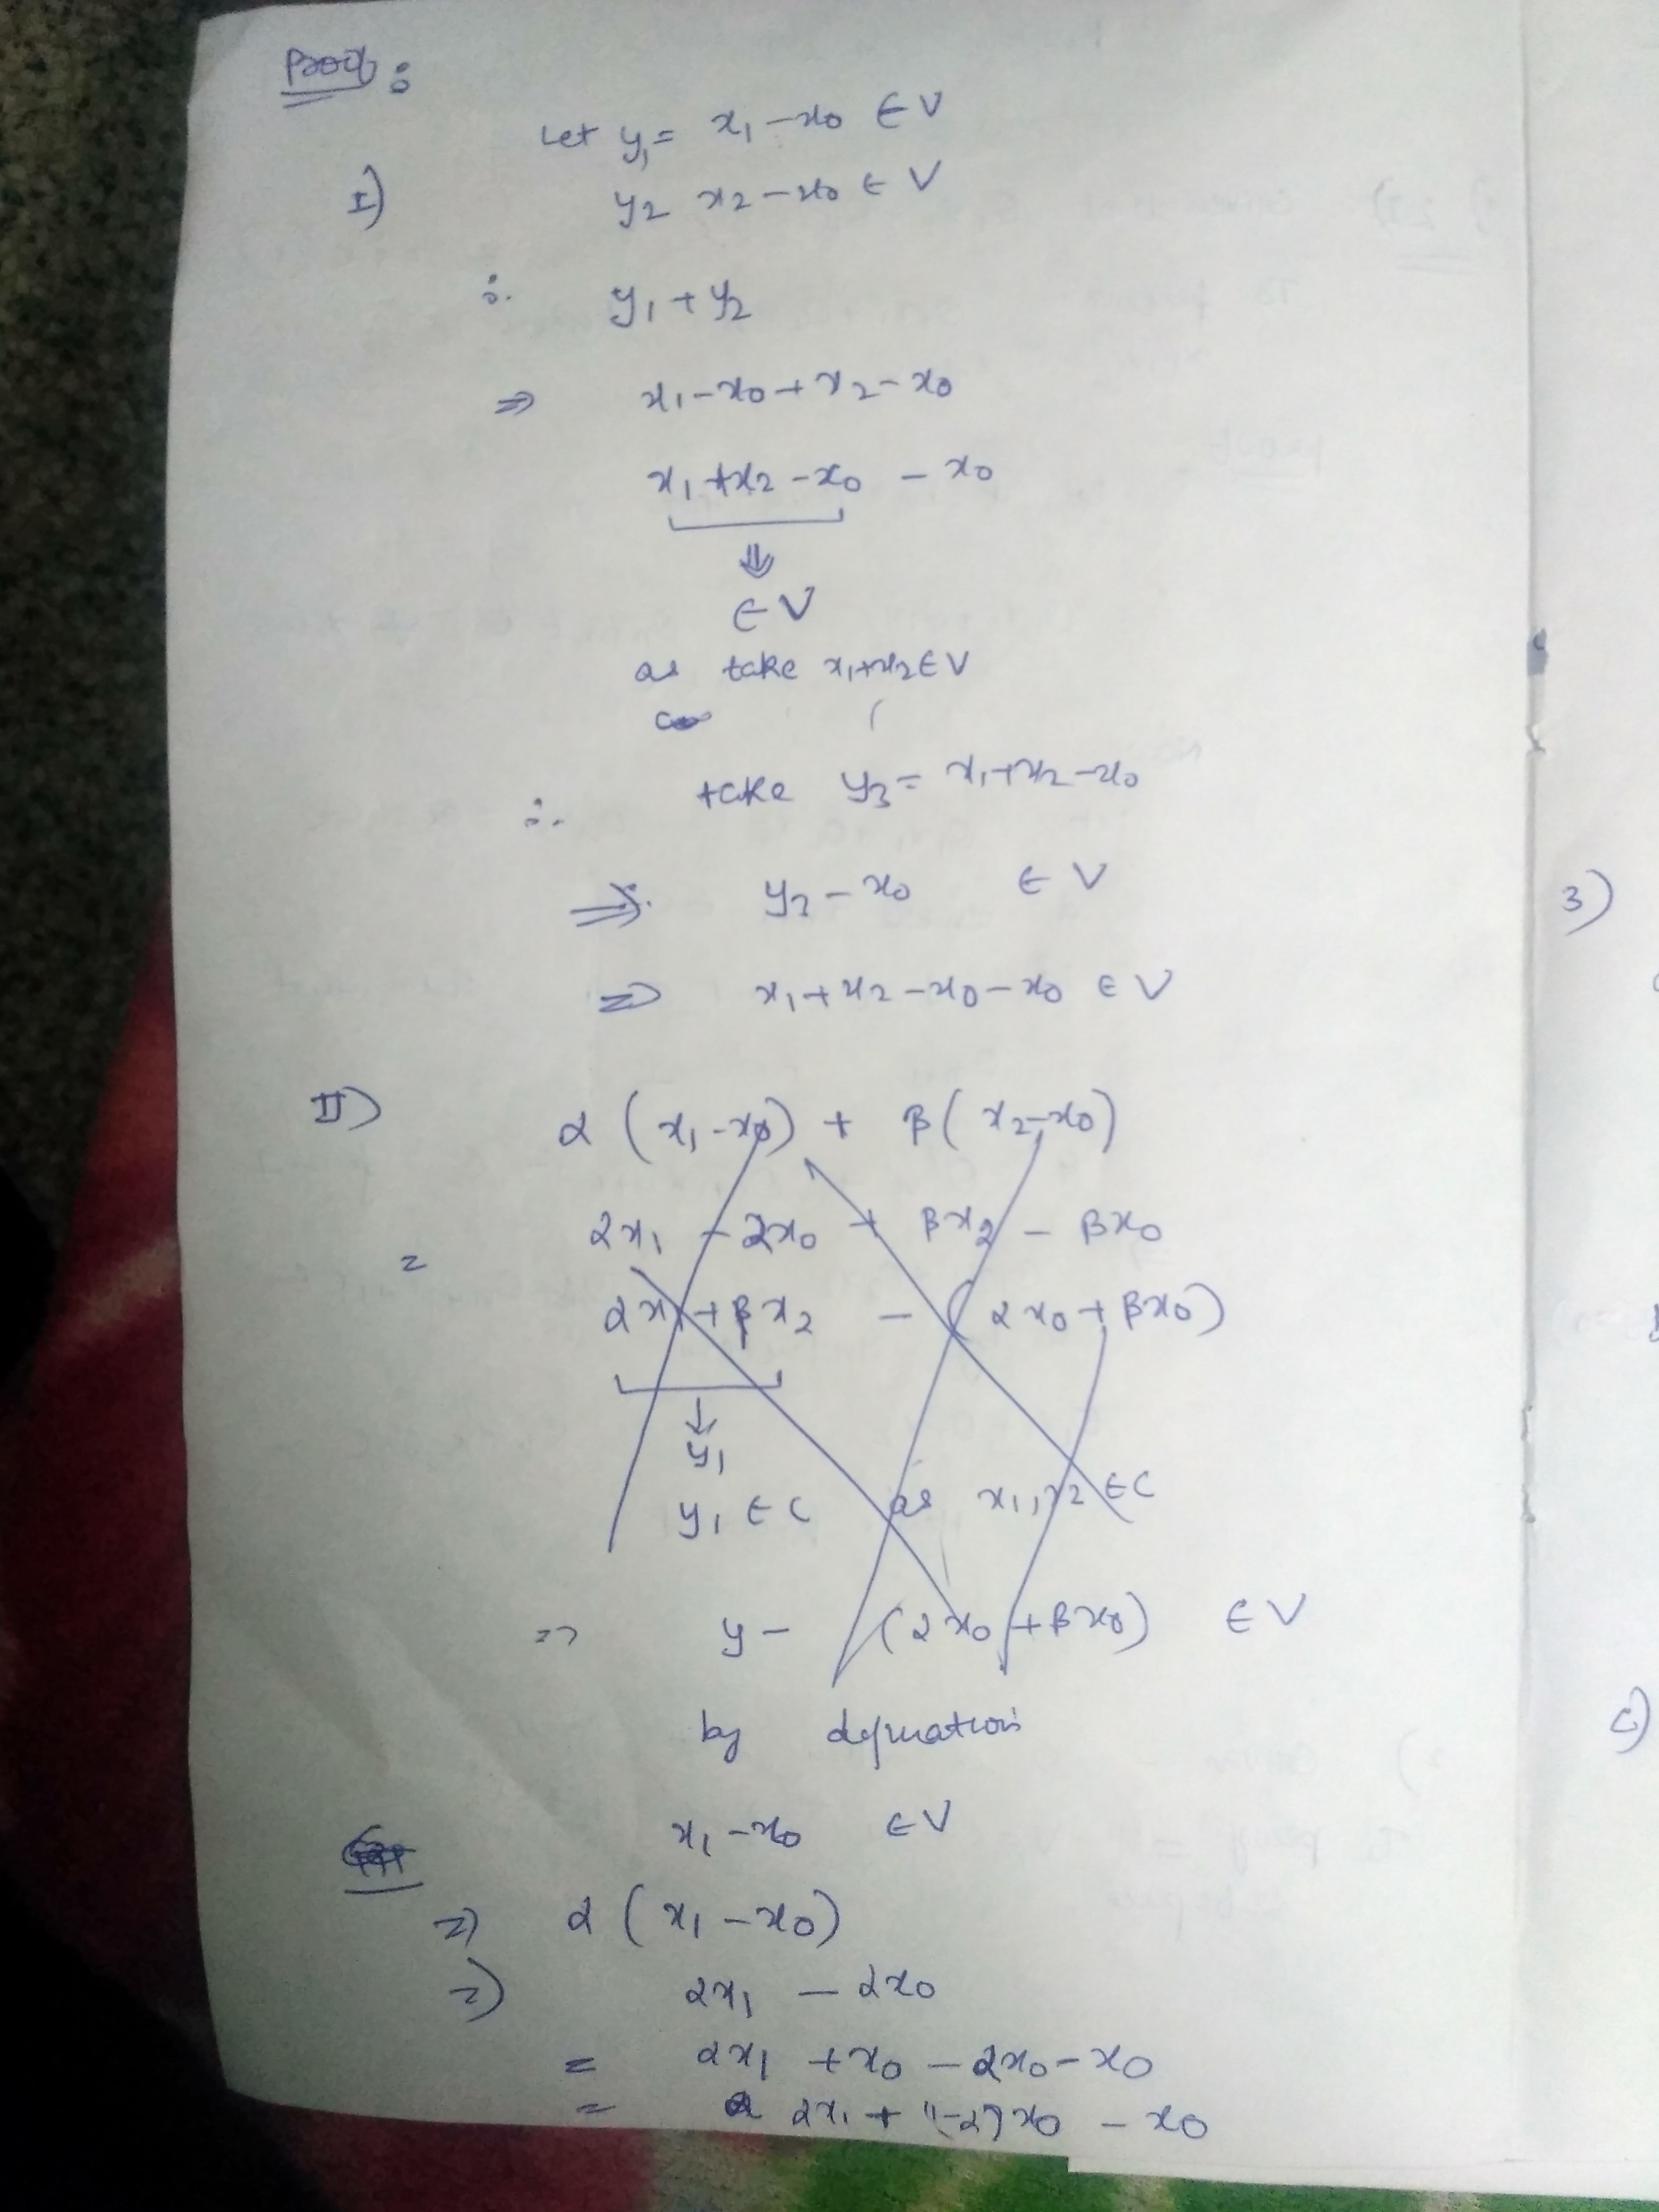 Proof:
Let y₁ = x₁ - x₀ ∈ V
I) y₂ x₂ - x₀ ∈ V
∴ y₁ + y₂
⇒ x₁ - x₀ + x₂ - x₀
x₁ + x₂ - x₀ - x₀
⇓
∈ V
as take x₁+x₂ ∈ V
∴ take y₃ = x₁+x₂-x₀
⇒ y₃ - x₀ ∈ V
⇒ x₁+x₂-x₀-x₀ ∈ V
II) α (x₁-x₀) + β (x₂-x₀)
= αx₁ - αx₀ + βx₂ - βx₀
αx₁ + βx₂ - (αx₀ + βx₀)
↓
y₁
y₁ ∈ C as x₁, x₂ ∈ C
⇒ y - (αx₀ + βx₀) ∈ V
by
x₁ - x₀ ∈ V
⇒ α (x₁ - x₀)
⇒ αx₁ - αx₀
= αx₁ + x₀ - αx₀ - x₀
= αx₁ + (1-α)x₀ - x₀
3)
C)